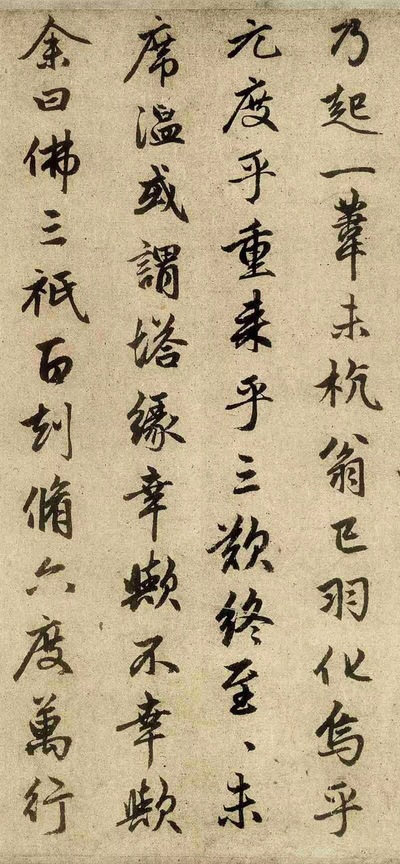 乃起一葦未杭翁已羽化烏乎
元度乎重来乎三歎終至、未
席溫或謂塔緣幸歟不幸歟
余曰佛三祇百劫脩六度萬行